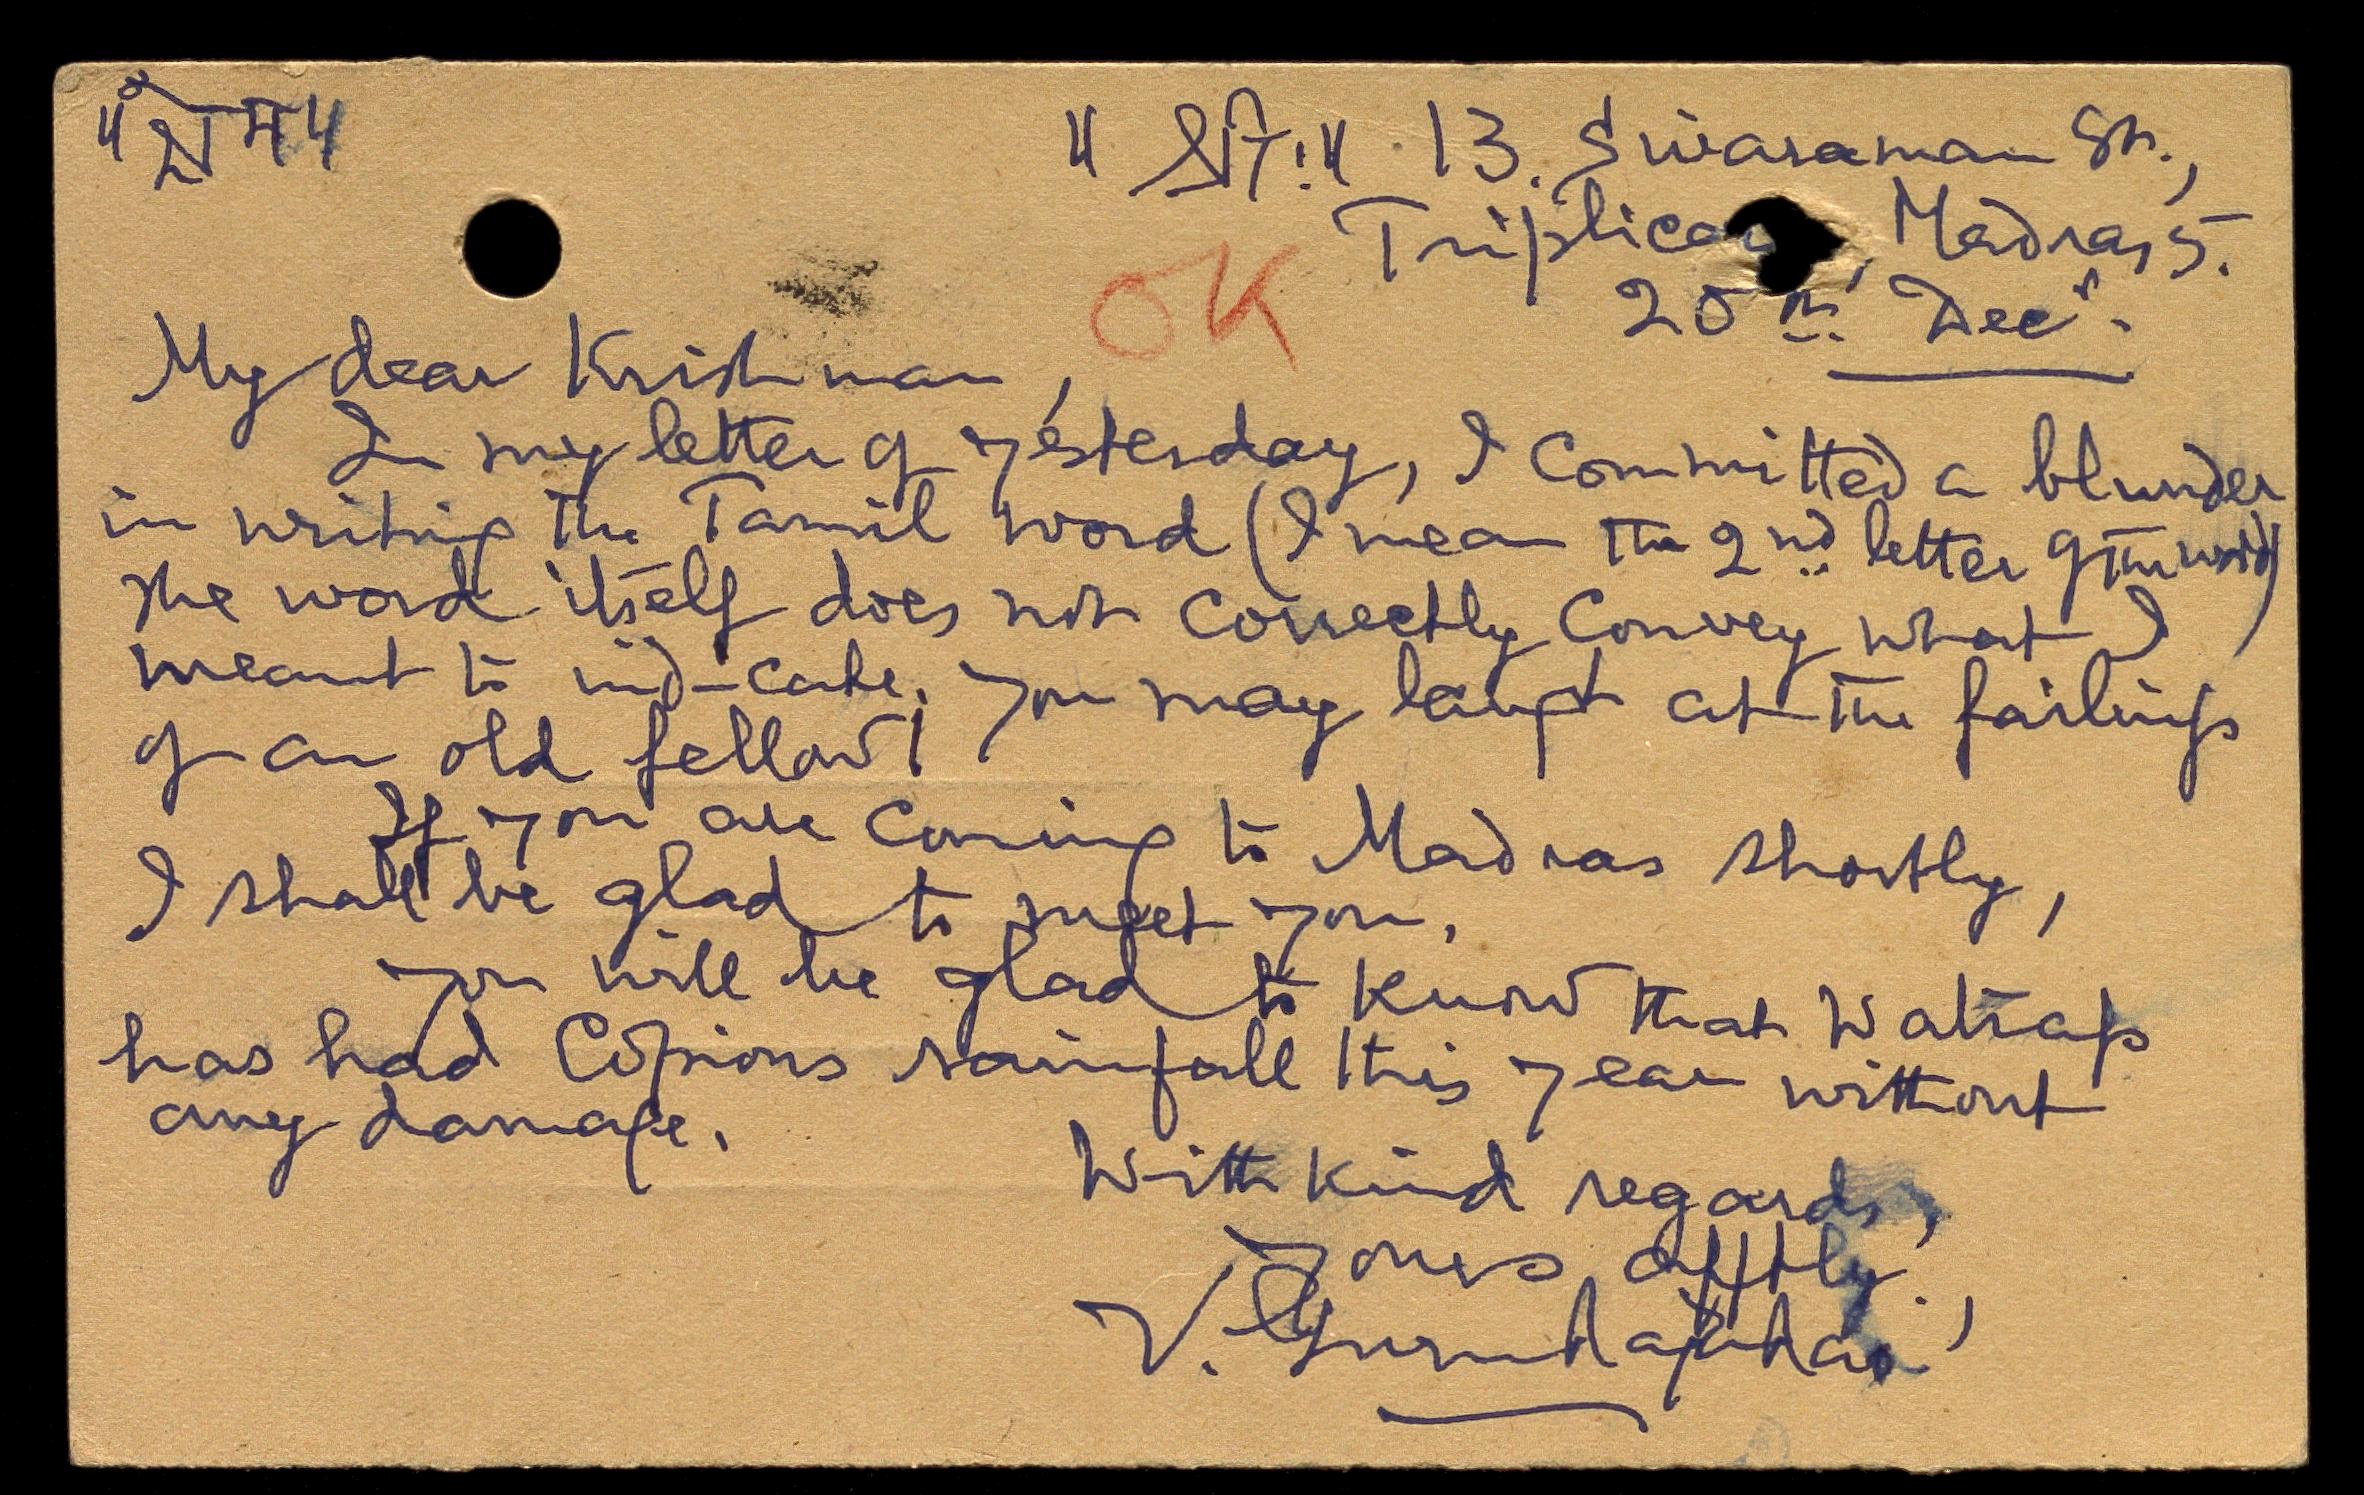 13. Sivaraman St.,
Triplicane, Madras 5.
20th Decr.
OK
My dear Krishnan,
In my letter of yesterday, I committed a blunder
in writing the Tamil word (I mean the 2nd letter of the word)
The word itself does not correctly convey what I
meant to ind-cate. You may laugh at the failings
of an old fellow!
If you are coming to Madras shortly,
I shall be glad to meet you.
You will be glad to know that Watrap
has had copious rainfall this year without
any damage.
With kind regards,
Yours afftly.,
V.